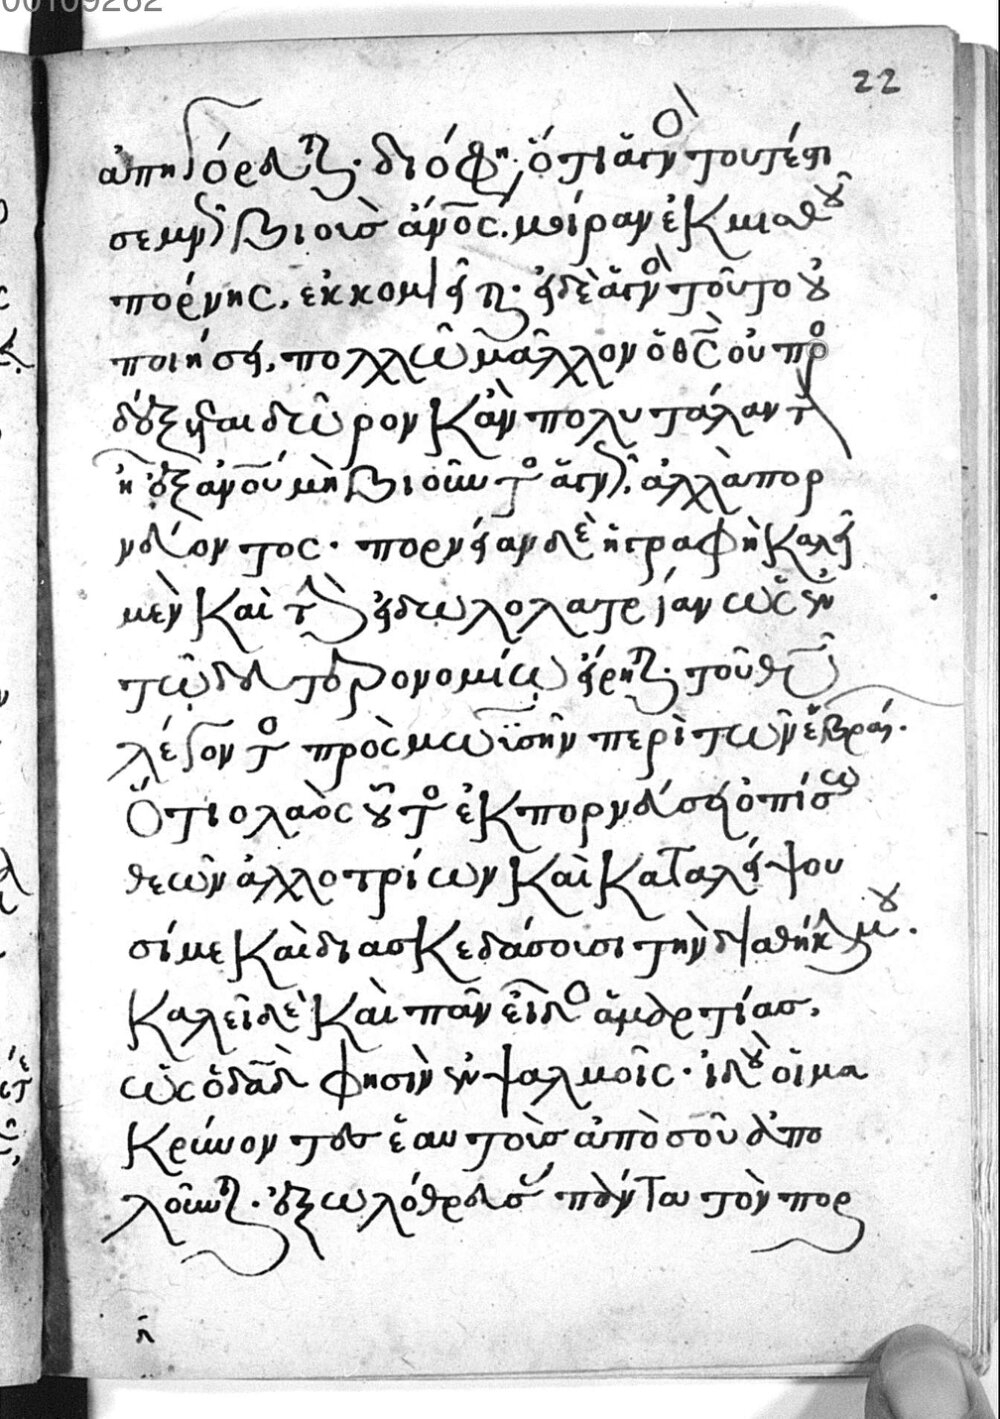 00109262
22
ἀπηγόρευται· διό φη, ὅτι ἅγιον τουτέστι
σεμνῶς βιοῖς ἄν̅ο̅ς, μοίραν ἐκ μισθοῦ
πόρνης, ἐκκομιεῖται· εἰ δὲ ἅγιον τοῦτο οὐ
ποιήσει, πολλῶ μᾶλλον ὁ θ̅ς̅ οὐ προσ
δέξεται δῶρον κἂν πολυτάλαντον
ἢ ἐξ ἀν̅ο̅υ μὴ βιοῦντος ἁγνῶς, ἀλλὰ πορ
νεύοντος· πορνείαν δὲ ἡ γραφὴ καλεῖ
μὲν καὶ τὴν εἰδωλολατρείαν ὡς ἐν
τῷ δευτερονομίω εἴρηται· τοῦ θ̅υ̅
λέγοντος πρὸς μωϋσῆν περὶ τῶν ἑβραί.
Ὅτι ὁ λαὸς οὗτος ἐκπορνεύσει ὀπίσω
θεῶν ἀλλοτρίων καὶ καταλείψου
σί με καὶ διασκεδάσοισι τὴν διαθήκην μου.
καλεῖ δὲ καὶ πᾶν εἶδος ἁμαρτίας,
ὡς ὁ δα̅δ̅ φησὶν ἐν ψαλμοῖς· ἰδοὺ οἱ μα
κρύνοντες ἑαυτοὺς ἀπὸ σοῦ ἀπο
λοῦνται· ἐξωλόθρευσας πάντα τὸν πορ